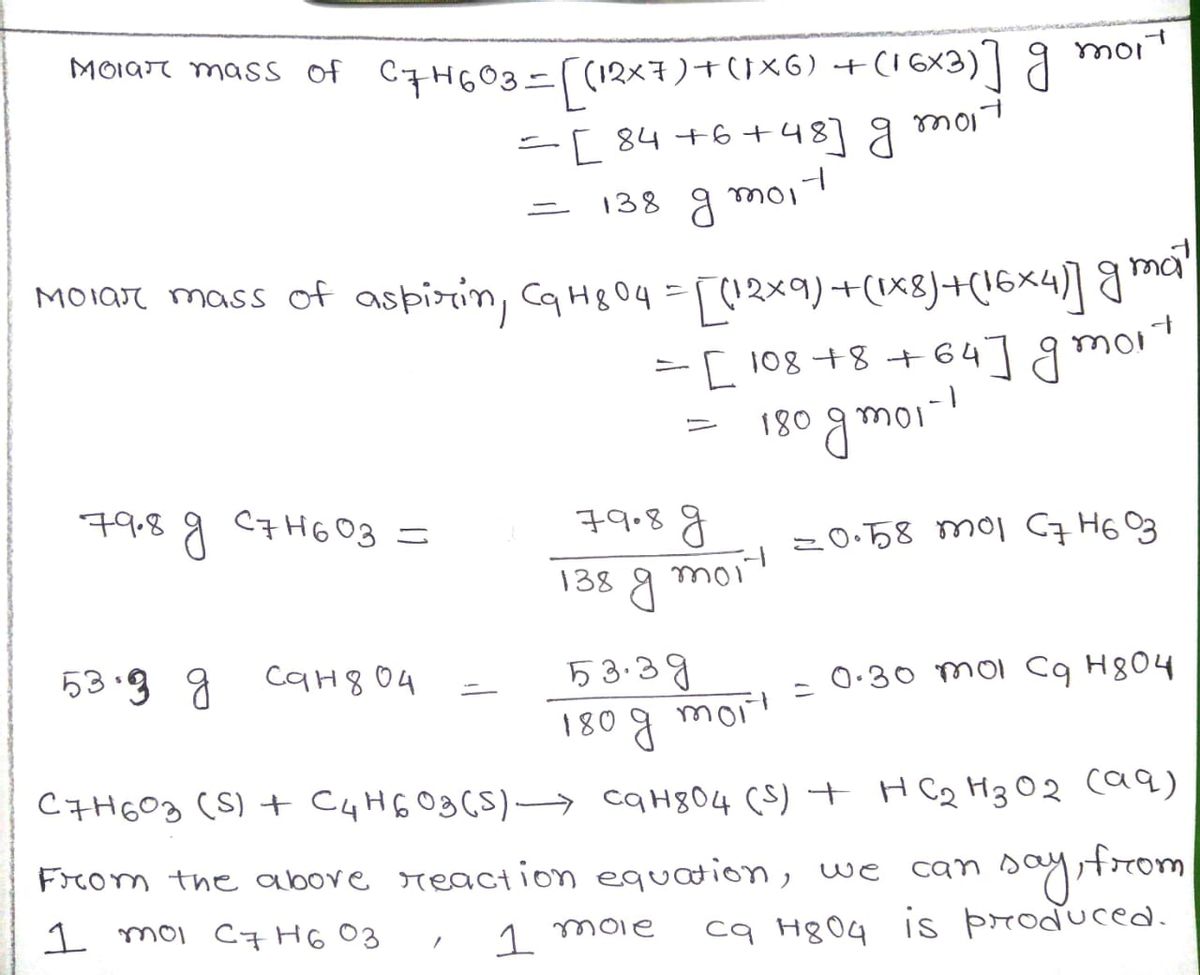 Molar mass of C7H6O3 = [(12×7)+(1×6) +(16×3)] g mol-1
= [ 84 +6 +48] g mol-1
= 138 g mol-1
Molar mass of aspirin, C9H8O4 = [(12×9)+(1×8)+(16×4)] g mol-1
= [ 108 +8 +64] g mol-1
= 180 g mol-1
79.8 g C7H6O3 = 79.8 g / 138 g mol-1 = 0.58 mol C7H6O3
53.3 g C9H8O4 = 53.3g / 180 g mol-1 = 0.30 mol C9H8O4
C7H6O3 (S) + C4H6O3(S) → C9H8O4 (S) + HC2H3O2 (aq)
From the above reaction equation, we can say, from
1 mol C7H6O3 , 1 mole C9H8O4 is produced.